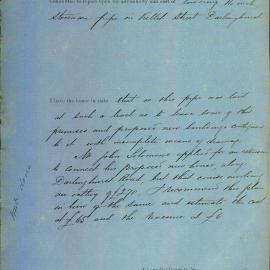 Committee to report upon the advisability and cost of lowering 12 inch
Stoneware pipe in Kellett Street Darlinghurst
I have the honor to state that as this pipe was laid
at such a level as to leave some of this
premises and proposed new buildings contiguous
to it with incomplete means of drainage
Mr John Solomons applied for an extension
to connect his proposed new houses along
Darlinghurst Road, but that course involving
an outlay of £270 I recommend this plan
in lieu of the same and estimate the cost
at £65 and the revenue at £6